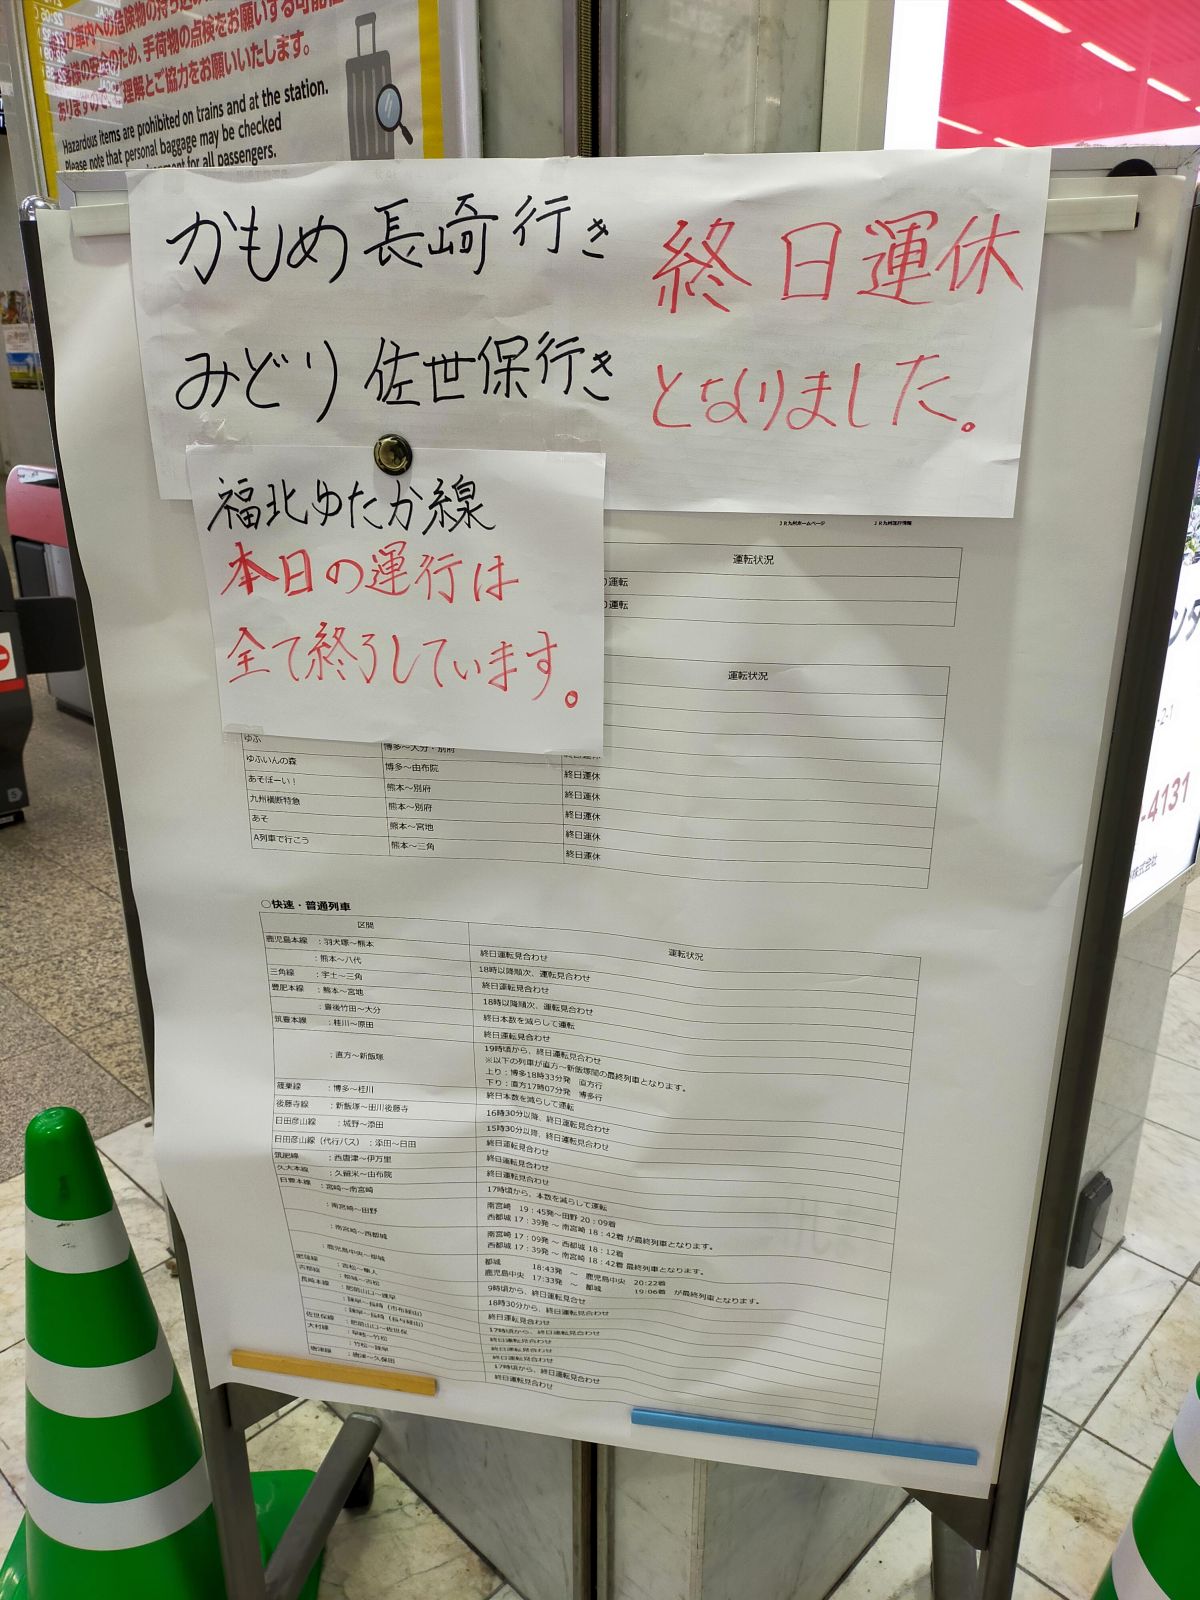 び車内への危険物の持ち込み
様の安全のため、手荷物の点検をお願いする可能性
ありますのでご理解とご協力をお願いいたします。
Hazardous items are prohibited on trains and at the station.
Please note that personal baggage may be checked
for all passengers.
かもめ 長崎 行き 終日運休
みどり 佐世保行き となりました。
福北ゆたか線
本日の運行は
全て終了しています。
JR九州ホームページ JR九州運行情報
運転状況
り運転
り運転
運転状況
ゆふ 博多~大分・別府
ゆふいんの森 博多~由布院 終日運休
あそぼーい! 熊本~別府 終日運休
九州横断特急 熊本~別府 終日運休
あそ 熊本~宮地 終日運休
A列車で行こう 熊本~三角 終日運休
○快速・普通列車
区間 運転状況
鹿児島本線 :羽犬塚~熊本 終日運転見合わせ
:熊本~八代 18時以降順次、運転見合わせ
三角線 :宇土~三角 終日運転見合わせ
豊肥本線 :熊本~宮地 18時以降順次、運転見合わせ
:豊後竹田~大分 終日本数を減らして運転
筑豊本線 :桂川~原田 終日運転見合わせ
:直方~新飯塚 19時頃から、終日運転見合わせ
※以下の列車が直方~新飯塚間の最終列車となります。
上り:博多18時33分発 直方行
下り:直方17時07分発 博多行
篠栗線 :博多~桂川 終日本数を減らして運転
後藤寺線 :新飯塚~田川後藤寺 16時30分以降、終日運転見合わせ
日田彦山線 :城野~添田 15時30分以降、終日運転見合わせ
日田彦山線(代行バス) :添田~日田 終日運転見合わせ
筑肥線 :西唐津~伊万里 終日運転見合わせ
久大本線 :久留米~由布院 終日運転見合わせ
日豊本線 :宮崎~南宮崎 17時頃から、本数を減らして運転
:南宮崎~田野 南宮崎 19:45発~田野 20:09着
西都城 17:39発 ~ 南宮崎 18:42着 が最終列車となります。
:南宮崎~西都城 南宮崎 17:09発 ~ 西都城 18:12着
西都城 17:39発 ~ 南宮崎 18:42着 最終列車となります。
:鹿児島中央~都城 都城 18:43発 ~ 鹿児島中央 20:22着
鹿児島中央 17:33発 ~ 都城 19:06着 が最終列車となります。
肥薩線 :吉松~隼人 9時頃から、終日運転見合せ
吉都線 :都城~吉松 18時30分から、終日運転見合わせ
長崎本線 :肥前山口~諫早 終日運転見合わせ
:諫早~長崎(市布経由) 17時頃から、終日運転見合わせ
:諫早~長崎(長与経由) 終日運転見合わせ
佐世保線 :肥前山口~佐世保 終日運転見合わせ
大村線 :早岐~竹松 終日運転見合わせ
:竹松~諫早 17時頃から、終日運転見合わせ
唐津線 :唐津~久保田 終日運転見合わせ
-2-1
-4131
株式会社